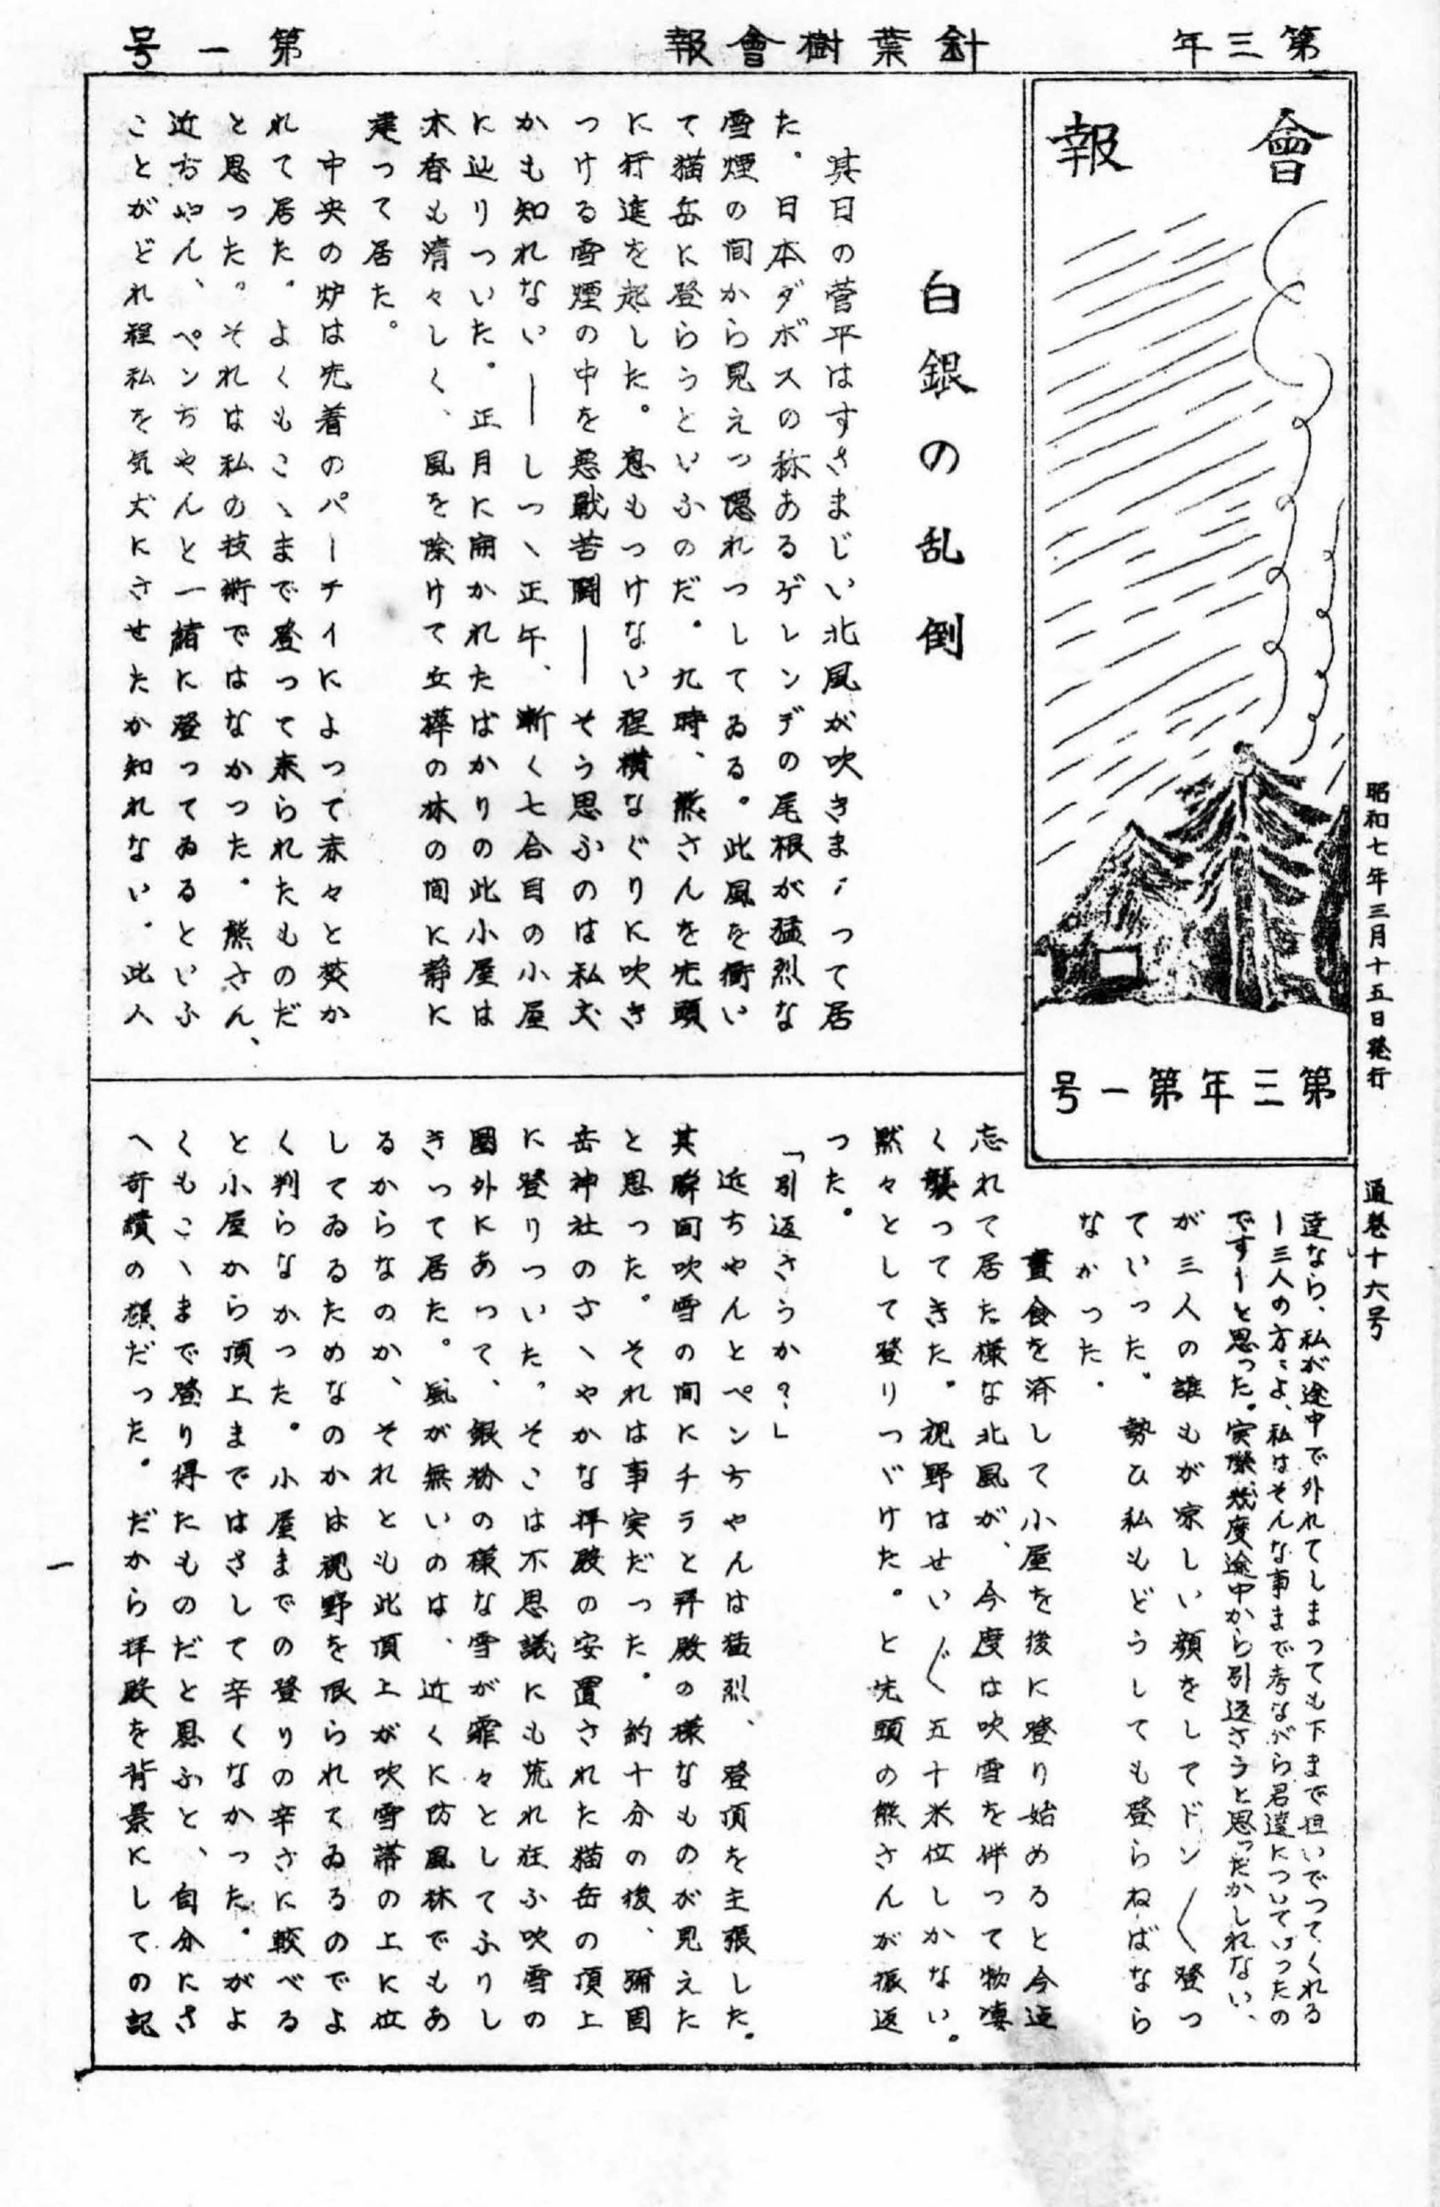 第三年
針葉樹會報
第一号
會報
第三年第一号
昭和七年三月十五日発行
通巻十六号
白銀の乱倒
其日の菅平はすさまじい北風が吹きまゝって居
た。日本ダボスの称あるゲレンデの尾根が猛烈な
雪煙の間から見えつ隠れつしてゐる。此風を衝い
て猫岳に登らうといふのだ。九時、熊さんを先頭
に行進を起した。息もつけない程横なぐりに吹き
つける雪煙の中を悪戦苦闘――そう思ふのは私丈
かも知れない――しつゝ正午、漸く七合目の小屋
に辿りついた。正月に開かれたばかりの此小屋は
木香も清々しく、風を除けて立樺の林の間に静に
建って居た。
中央の炉は先着のパーテイによって赤々と焚か
れて居た。よくもこゝまで登って来られたものだ
と思った。それは私の技術ではなかつた。熊さん、
近ちやん、ペンちやんと一緒に登ってゐるといふ
ことがどれ程私を気丈にさせたか知れない。此人
達なら、私が途中で外れてしまつても下まで担いでつてくれる
ー三人の方々よ、私はそんな事まで考ながら君達についていつたの
ですーと思った。実際幾度途中から引返さうと思ったかしれない、
が三人の誰もが涼しい顔をしてドン〱登つ
ていった。勢ひ私もどうしても登らねばなら
なかった。
晝食を済して小屋を後に登り始めると今迄
忘れて居た様な北風が、今度は吹雪を伴って物凄
く襲ってきた。視野はせい〲五十米位しかない。
黙々として登りつゞけた。と先頭の熊さんが振返
った。
「引返さうか?」
近ちやんとペンちやんは猛烈、登頂を主張した。
其瞬間吹雪の間にチラと拝殿の様なものが見えた
と思った。それは事実だった。約十分の後、彌固
岳神社のさゝやかな拝殿の安置された猫岳の頂上
に登りついた。そこは不思議にも荒れ狂ふ吹雪の
圏外にあって、銀粉の様な雪が霏々としてふりし
きって居た。風が無いのは、近くに防風林でもあ
るからなのか、それとも此頂上が吹雪帯の上に位
してゐるためなのかは視野を限られてゐるのでよ
く判らなかった。小屋までの登りの辛さに較べる
と小屋から頂上まではさして辛くなかった。がよ
くもこゝまで登り得たものだと思ふと、自分にさ
へ奇蹟の様だった。だから拝殿を背景にしての記
一